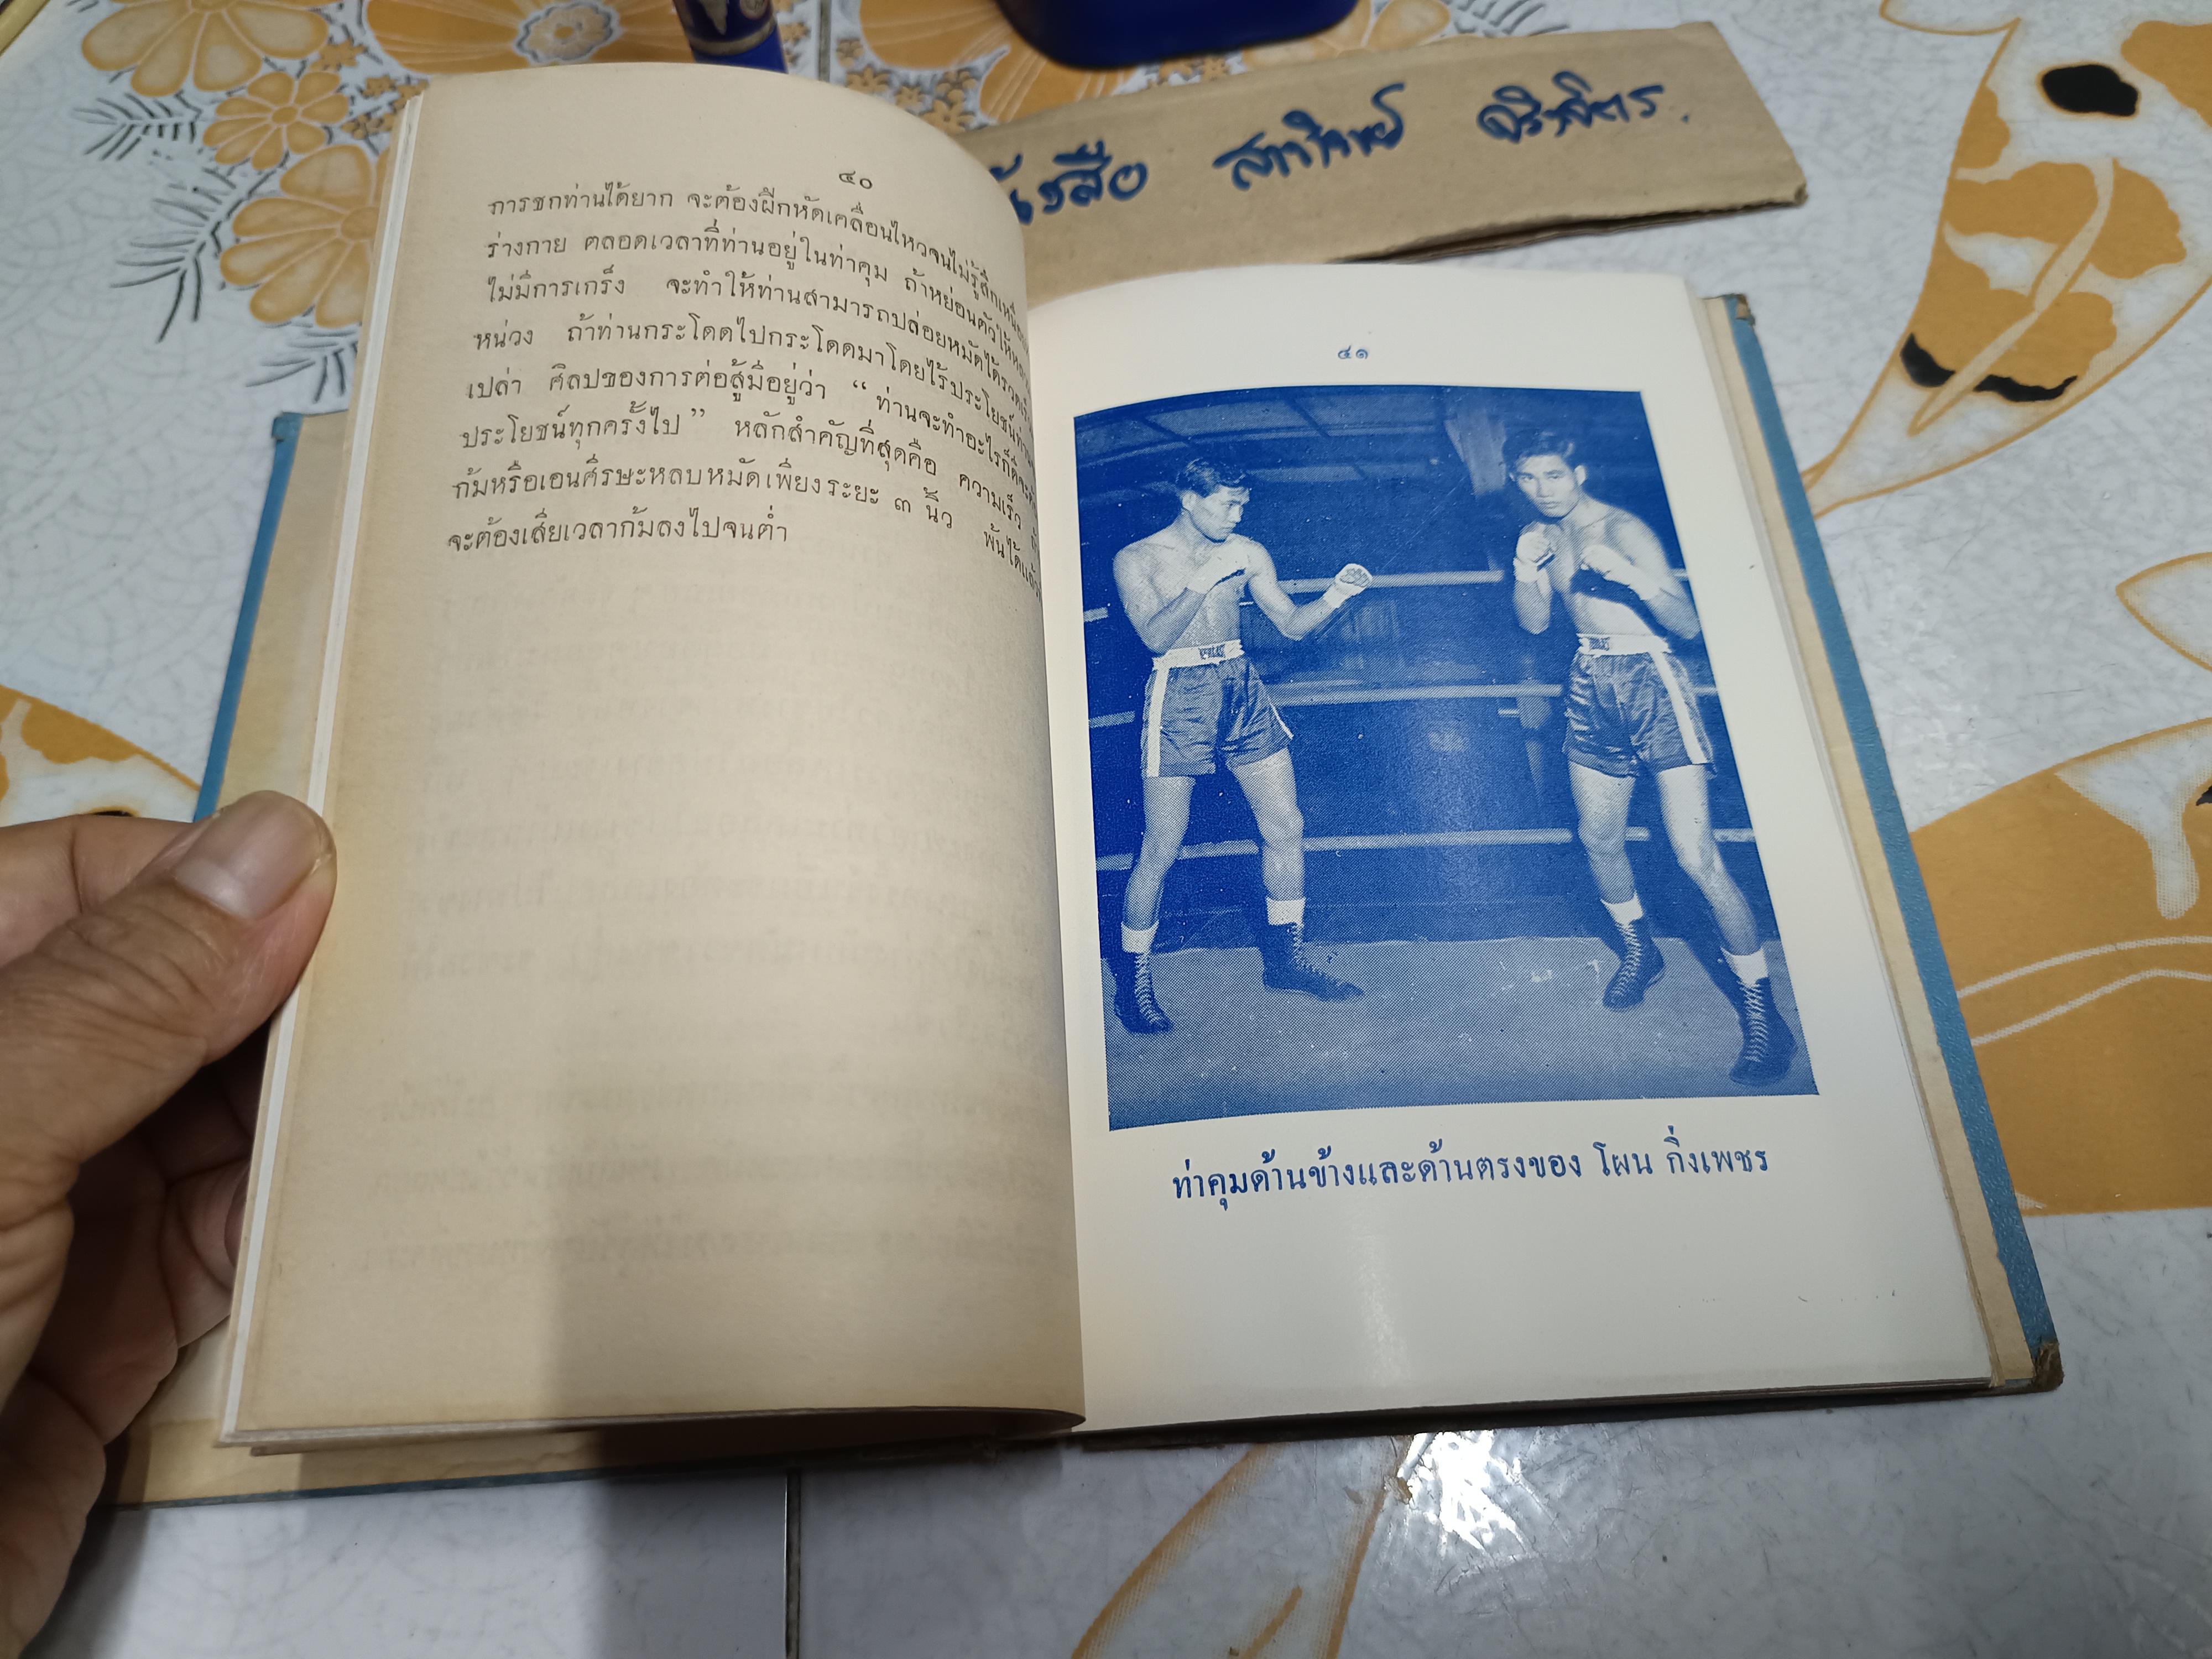 ๔๐
การชกท่านได้ยาก จะต้องฝึกหัดเคลื่อนไหวจนไม่รู้สึกเหนื่อย
ร่างกาย ตลอดเวลาที่ท่านอยู่ในท่าคุม ถ้าหย่อนตัวให้
ไม่มีการเกร็ง จะทำให้ท่านสามารถปล่อยหมัดได้รวดเร็ว
หน่วง ถ้าท่านกระโดดไปกระโดดมาโดยไร้ประโยชน์
เปล่า ศิลปของการต่อสู้มีอยู่ว่า “ ท่านจะทำอะไรก็ดีจะ
ประโยชน์ทุกครั้งไป ” หลักสำคัญที่สุดคือ ความเร็ว
ก้มหรือเอนศีรษะหลบหมัดเพียงระยะ ๓ นิ้ว พ้นได้แล้ว
จะต้องเสียเวลาก้มลงไปจนต่ำ
๔๑
ท่าคุมด้านข้างและด้านตรงของ โผน กิ่งเพชร